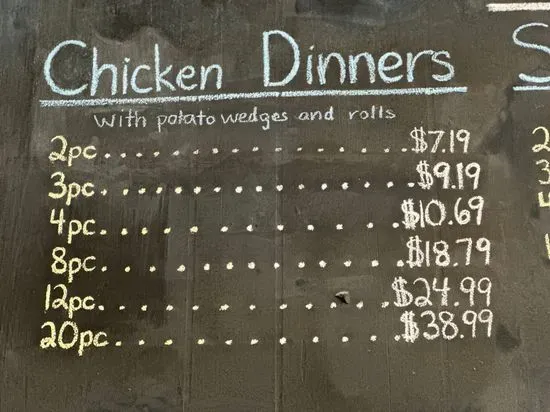 Chicken Dinners
with potato wedges and rolls
2pc. . . . . . . . . . . . . . $7.19
3pc. . . . . . . . . . . . . . $9.19
4pc. . . . . . . . . . . . $10.69
8pc. . . . . . . . . . . . $18.79
12pc. . . . . . . . . . . $24.99
20pc. . . . . . . . . . . $38.99